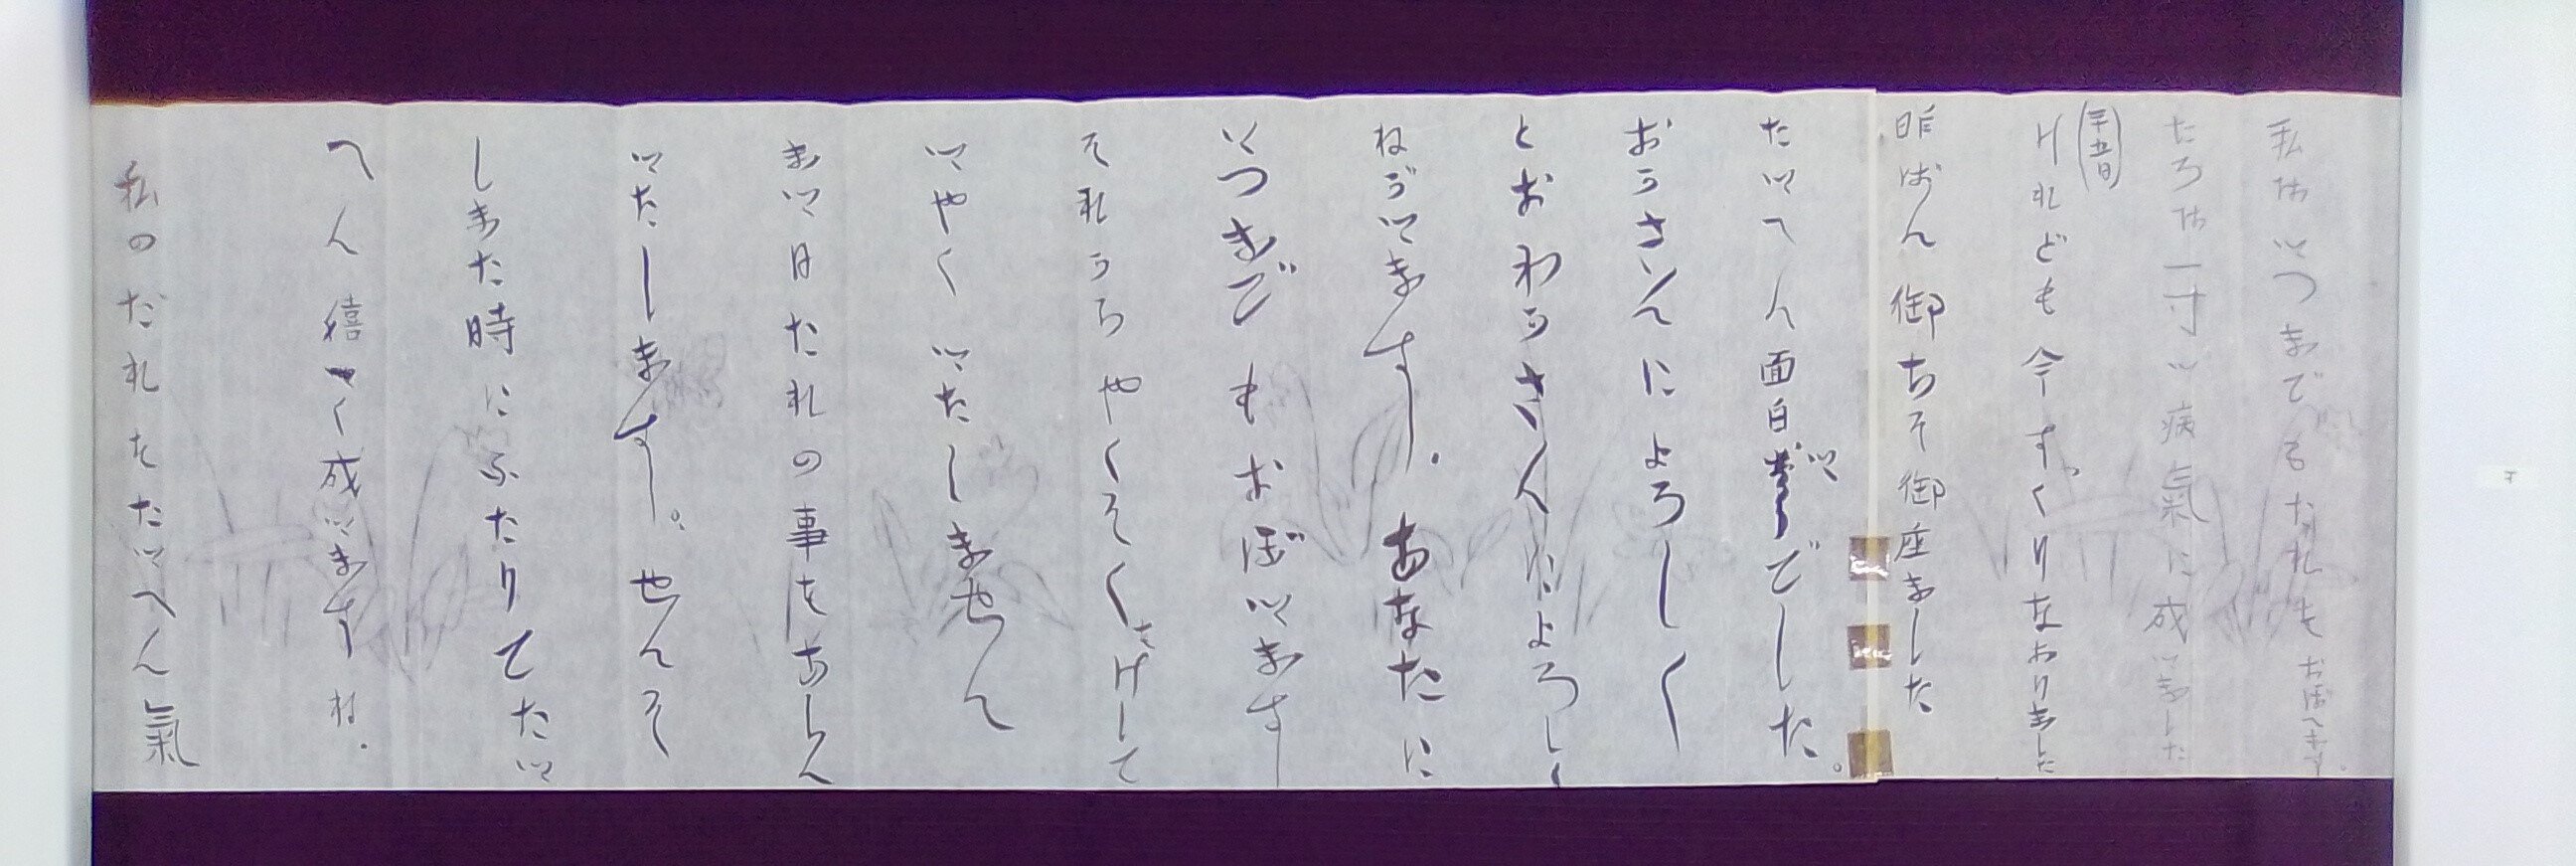 私はいつまでもたれもおぼへます。
たろは一寸い病氣に成いました
(二十五日)
けれども今すっくりなおりました
昨ばん御ちそ御座ました
たいへん面白いでした。
おうさんによろしく
とおわうさんによろしく
ねがいます。あなたに
いつきでもおぼいます
それうろやくそくさげして
いやくいたしません
まい日たれの事をあらん
いたします。せんそ
しまた時にふたりてたい
へん嬉く成います ね.
私のだれをたいへん氣